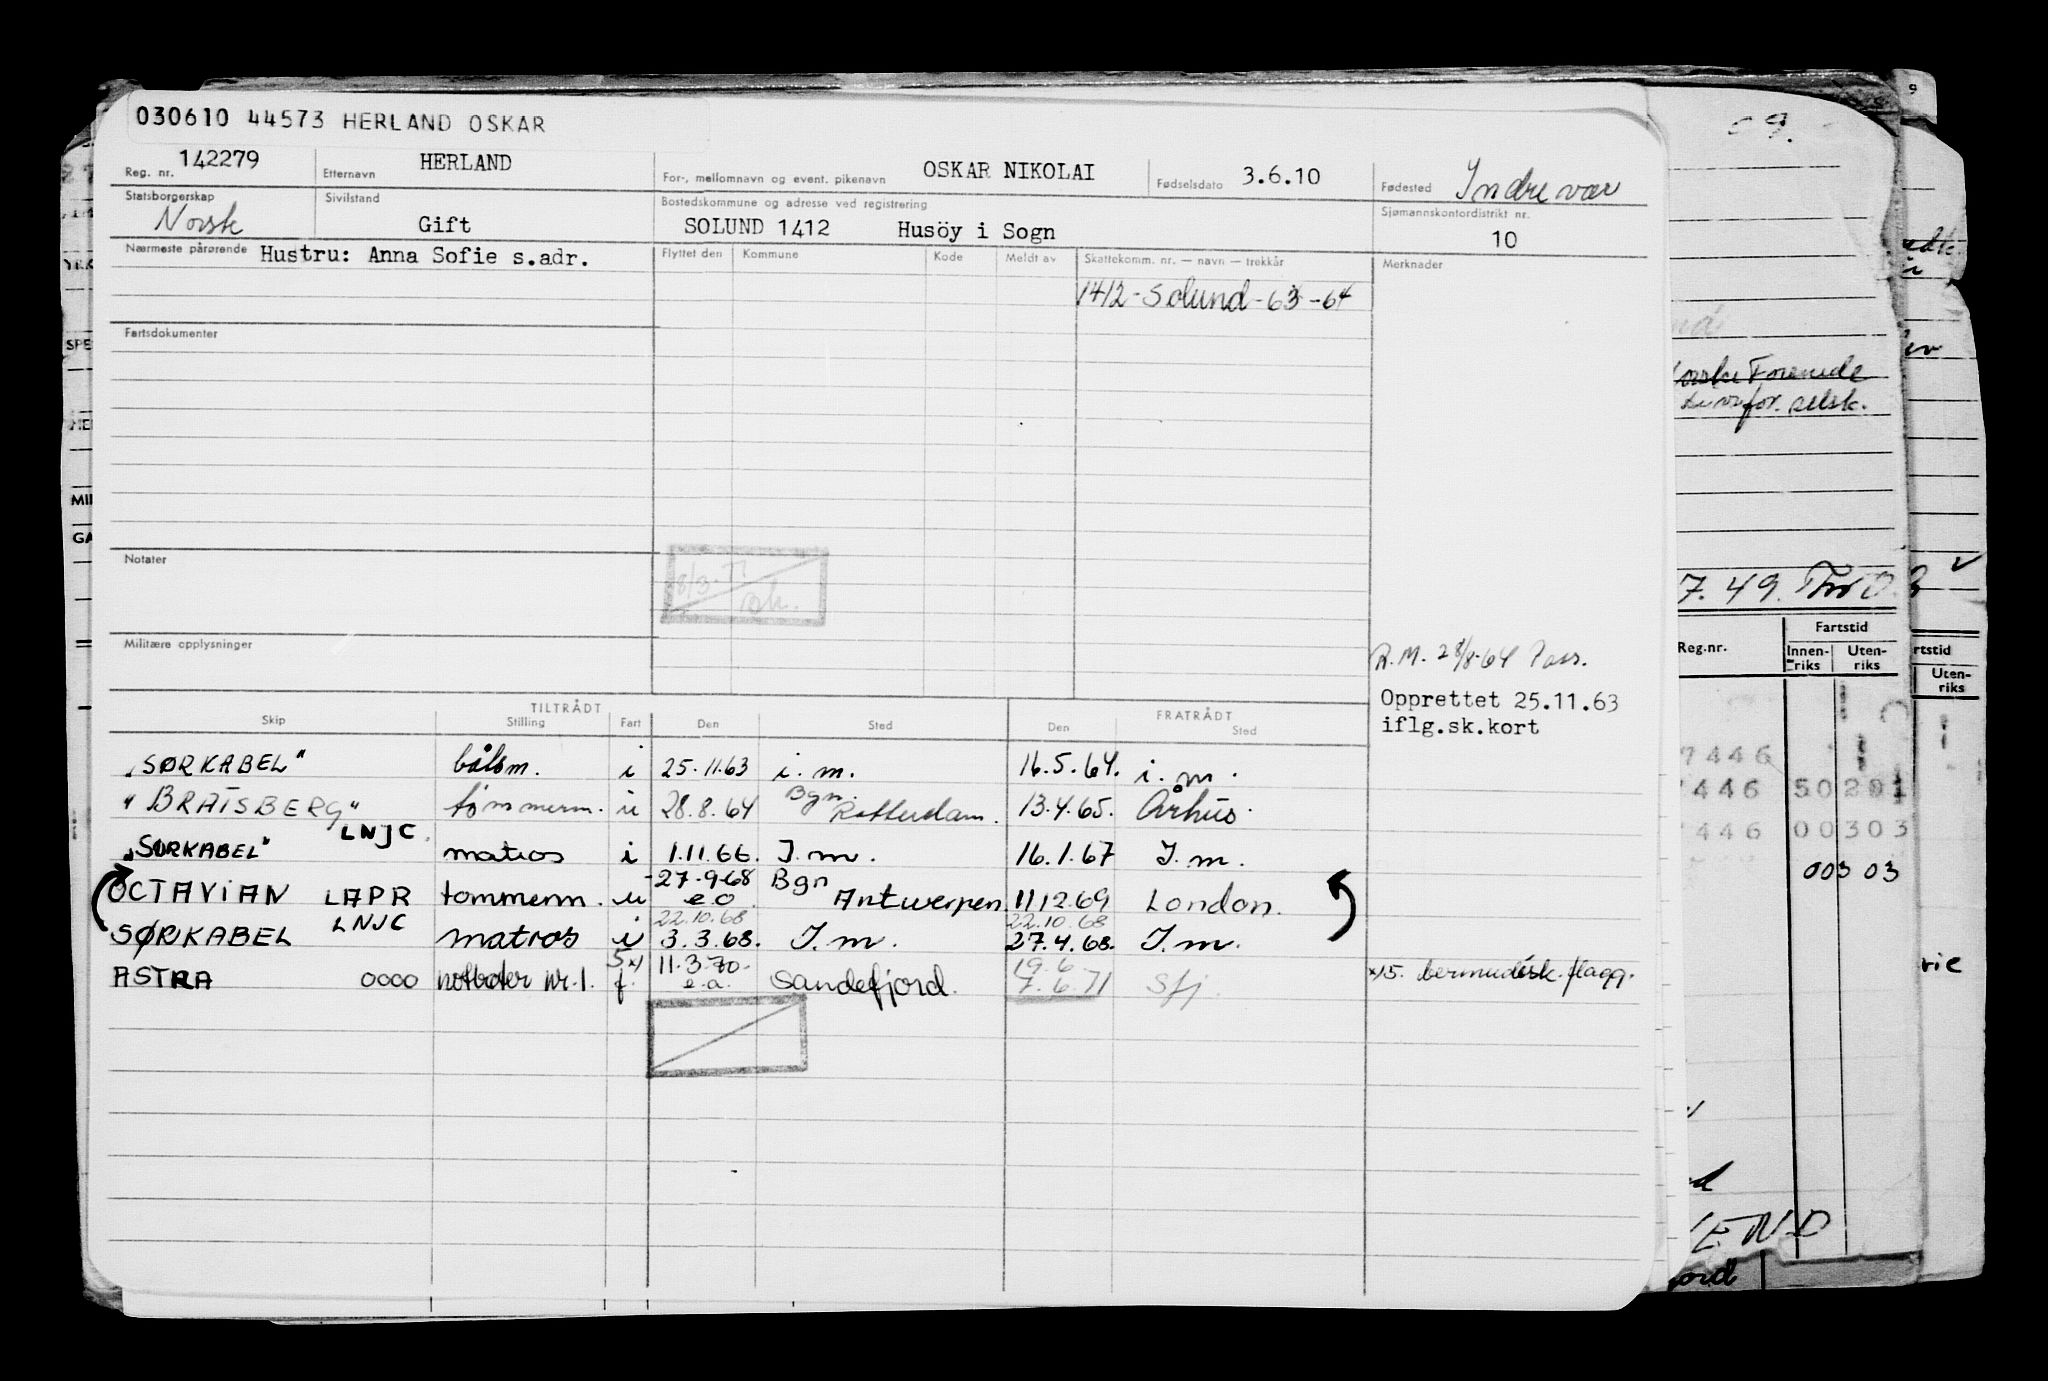 030610 44573 HERLAND OSKAR
Reg. nr. 142279 Etternavn HERLAND For-, mellomnavn og event. pikenavn OSKAR NIKOLAI Fødselsdato 3.6.10 Fødested Indrevær
Statsborgerskap Norsk Sivilstand Gift Bostedskommune og adresse ved registrering SOLUND 1412 Husöy i Sogn Sjømannskontordistrikt nr. 10
Nærmeste pårørende Hustru: Anna Sofie s.adr. Flyttet den Kommune Kode Meldt av Skattekomm. nr. — navn — trekkår Merknader
1412 - Solund - 63 - 64
Fartsdokumenter
Notater
8/3-71
Militære opplysninger
R.M. 28/8-64 Pass.
Opprettet 25.11.63
iflg.sk.kort
TILTRÅDT FRATRÅDT
Skip Stilling Fart Den Sted Den Sted
"SØRKABEL" båtsm. i 25.11.63 i.m. 16.5.64. i.m.
"BRATSBERG" tømmerm. u 28.8.64 Bgn. Rotterdam. 13.4.65. Århus.
LNJC.
"SØRKABEL" matros i 1.11.66. I.m. 16.1.67 I.m.
OCTAVIAN LAPR tømmerm. u 27.9.68 e.o Bgn Antwerpen 11.12.69 London.
LNJC 22.10.68 22.10.68
SØRKABEL matros i 3.3.68. I.m. 27.4.68. I.m.
ASTRA 0000 nr.1. 5x) f. 11.3.70. e.a. Sandefjord. 19.6 7.6.71 Sfj. x)5. bermudisk flagg.
09.
Forenede
selsk.
7.49.
Reg.nr. Fartstid
Innen-riks Uten-riks
rtstid
Uten-riks
7446
446 50291
446 00303
003 03